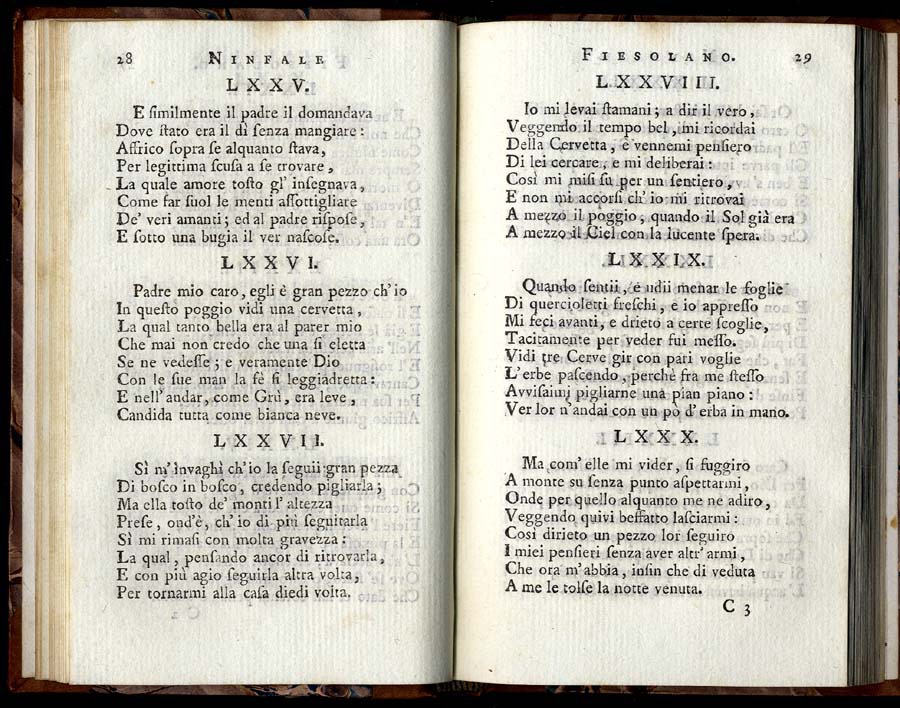 28 NINFALE
LXXV.
E ſimilmente il padre il domandava
Dove ſtato era il dì ſenza mangiare:
Affrico ſopra ſe alquanto ſtava,
Per legittima ſcuſa a ſe trovare,
La quale amore toſto gl' inſegnava,
Come far ſuol le menti aſſottigliare
De' veri amanti; ed al padre riſpoſe,
E ſotto una bugia il ver naſcoſe.
LXXVI.
Padre mio caro, egli è gran pezzo ch' io
In queſto poggio vidi una cervetta,
La qual tanto bella era al parer mio
Che mai non credo che una ſi eletta
Se ne vedeſſe; e veramente Dio
Con le ſue man la fè ſi leggiadretta:
E nell' andar, come Grù, era leve,
Candida tutta come bianca neve.
LXXVII.
Sì m' invaghì ch' io la ſeguii gran pezza
Di boſco in boſco, credendo pigliarla;
Ma ella toſto de' monti l' altezza
Preſe, ond'è, ch' io di più ſeguitarla
Sì mi rimaſi con molta gravezza:
La qual, penſando ancor di ritrovarla,
E con più agio ſeguirla altra volta,
Per tornarmi alla caſa diedi volta.
FIESOLANO. 29
LXXVIII.
Io mi levai ſtamani; a dir il vero,
Veggendo il tempo bel, mi ricordai
Della Cervetta, e vennemi penſiero
Di lei cercare, e mi deliberai:
Così mi miſi ſu per un ſentiero,
E non mi accorſi ch' io mi ritrovai
A mezzo il poggio, quando il Sol già era
A mezzo il Ciel con la lucente ſpera.
LXXIX.
Quando ſentii, e udii menar le foglie
Di quercioletti freſchi, e io appreſſo
Mi feci avanti, e drieto a certe ſcoglie,
Tacitamente per veder fui meſſo.
Vidi tre Cerve gir con pari voglie
L' erbe paſcendo, perchè fra me ſteſſo
Avviſaimi pigliarne una pian piano:
Ver lor n' andai con un pò d' erba in mano.
LXXX.
Ma com' elle mi vider, ſi fuggiro
A monte su ſenza punto aſpettarmi,
Onde per quello alquanto me ne adiro,
Veggendo quivi beffatto laſciarmi:
Così dirieto un pezzo lor ſeguiro
I miei penſieri ſenza aver altr' armi,
Che ora m' abbia, inſin che di veduta
A me le tolſe la notte venuta.
C 3